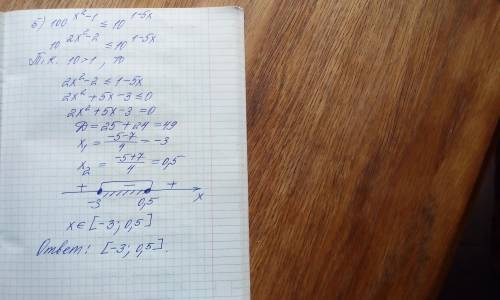 б) 100^(x²-1) ≤ 10^(1-5x)
10^(2x²-2) ≤ 10^(1-5x)
Т.к. 10>1, то
2x²-2 ≤ 1-5x
2x²+5x-3 ≤ 0
2x²+5x-3 = 0
D = 25+24 = 49
x₁ = (-5-7)/4 = -3
x₂ = (-5+7)/4 = 0,5
+ − +
-3 0,5 x
x ∈ [-3; 0,5]
Ответ: [-3; 0,5].